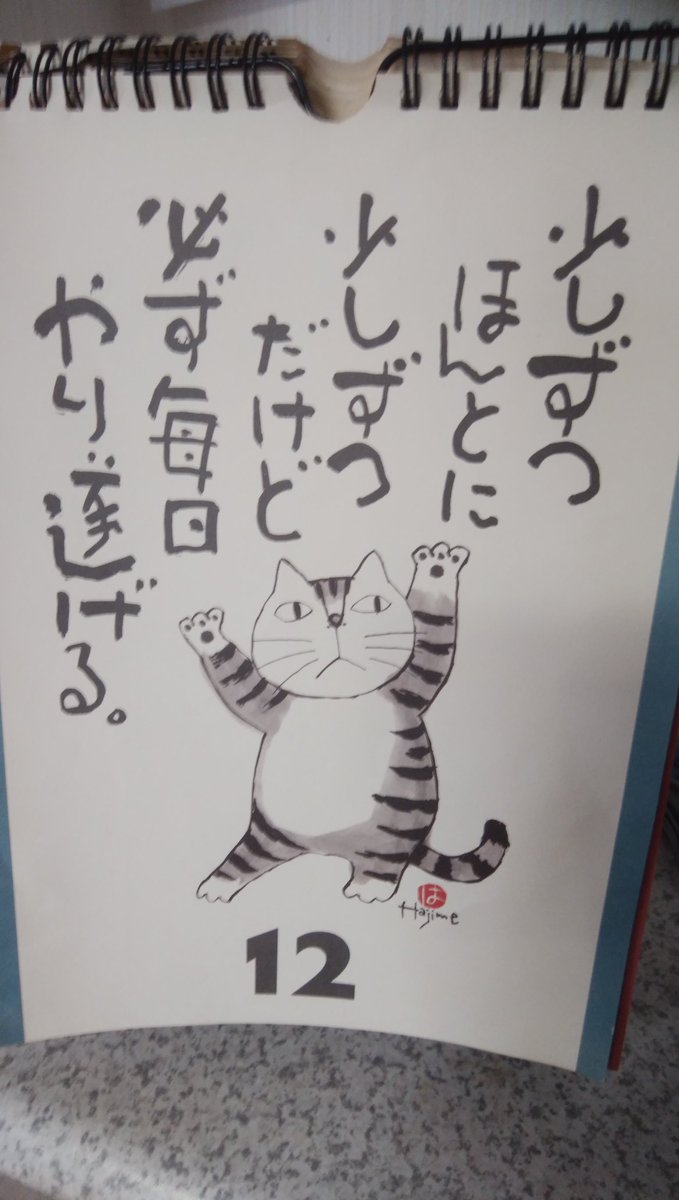 少しずつ
ほんとに
少しずつ
だけど
必ず毎日
やり遂げる。
は
Hajime
12